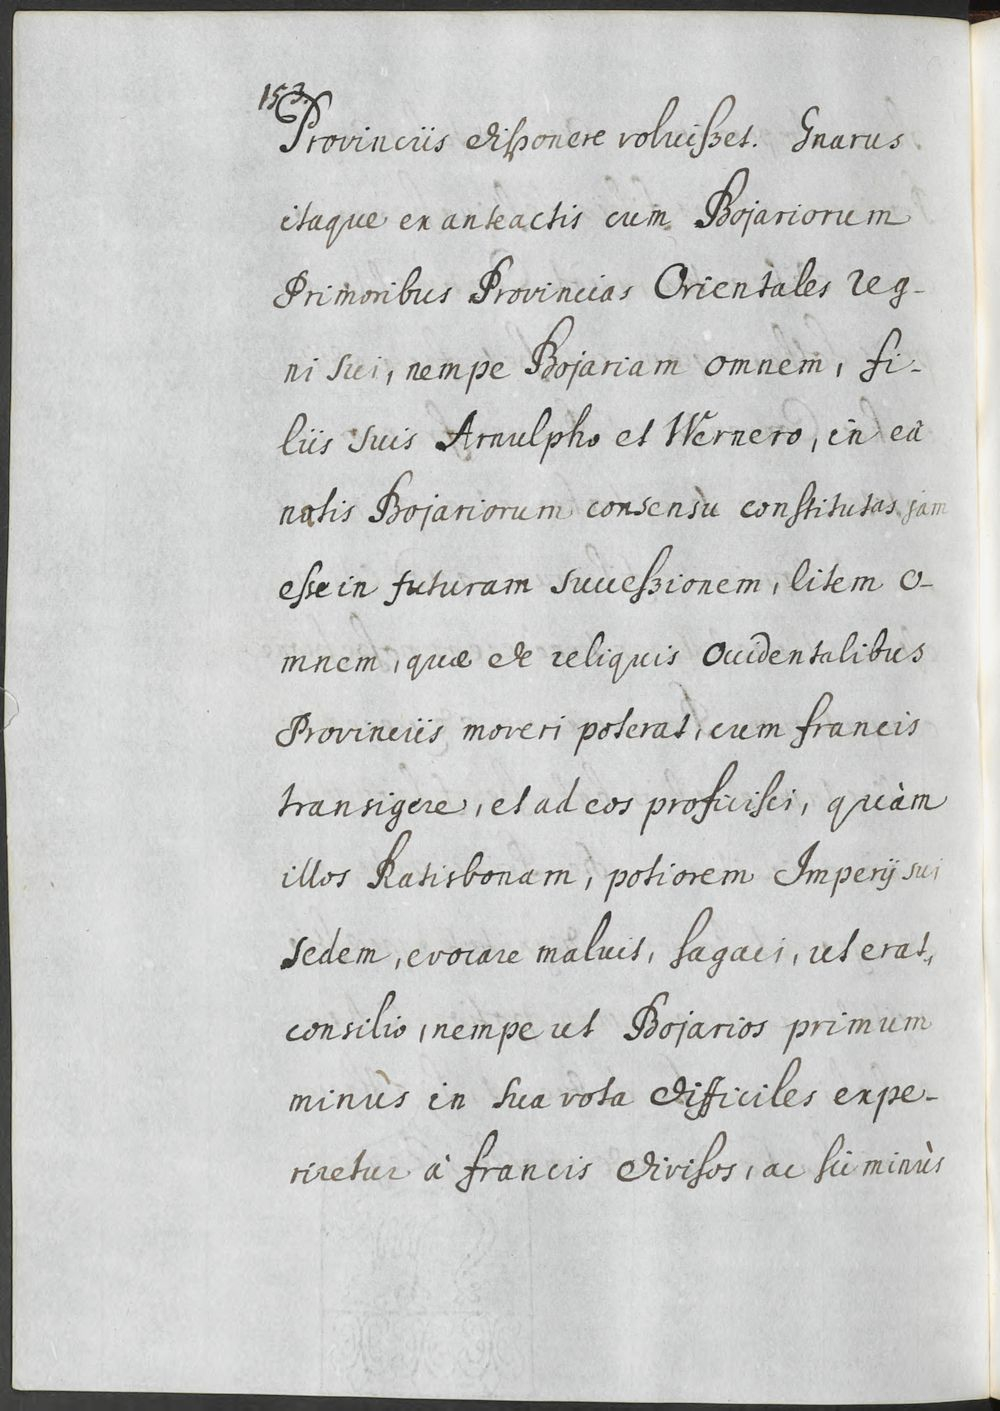 153.
Provinciis disponere voluisset. Gnarus
itaque ex anteactis cum Bojariorum
Primoribus Provincias Orientales reg-
ni sui, nempe Bojariam omnem, fi-
liis suis Arnulpho et Wernero, in eâ
natis Bojariorum consensu constitutas jam
esse in futuram successionem, litem o-
mnem, quæ de reliquis Occidentalibus
Provinciis moveri poterat, cum francis
transigere, et ad eos proficisci, quàm
illos Ratisbonam, potiorem Imperij sui
sedem, evocare maluit, sagaci, ut erat,
consilio, nempe ut Bojarios primum
minùs in sua vota difficiles expe-
riretur à francis divisos, ac sic minùs